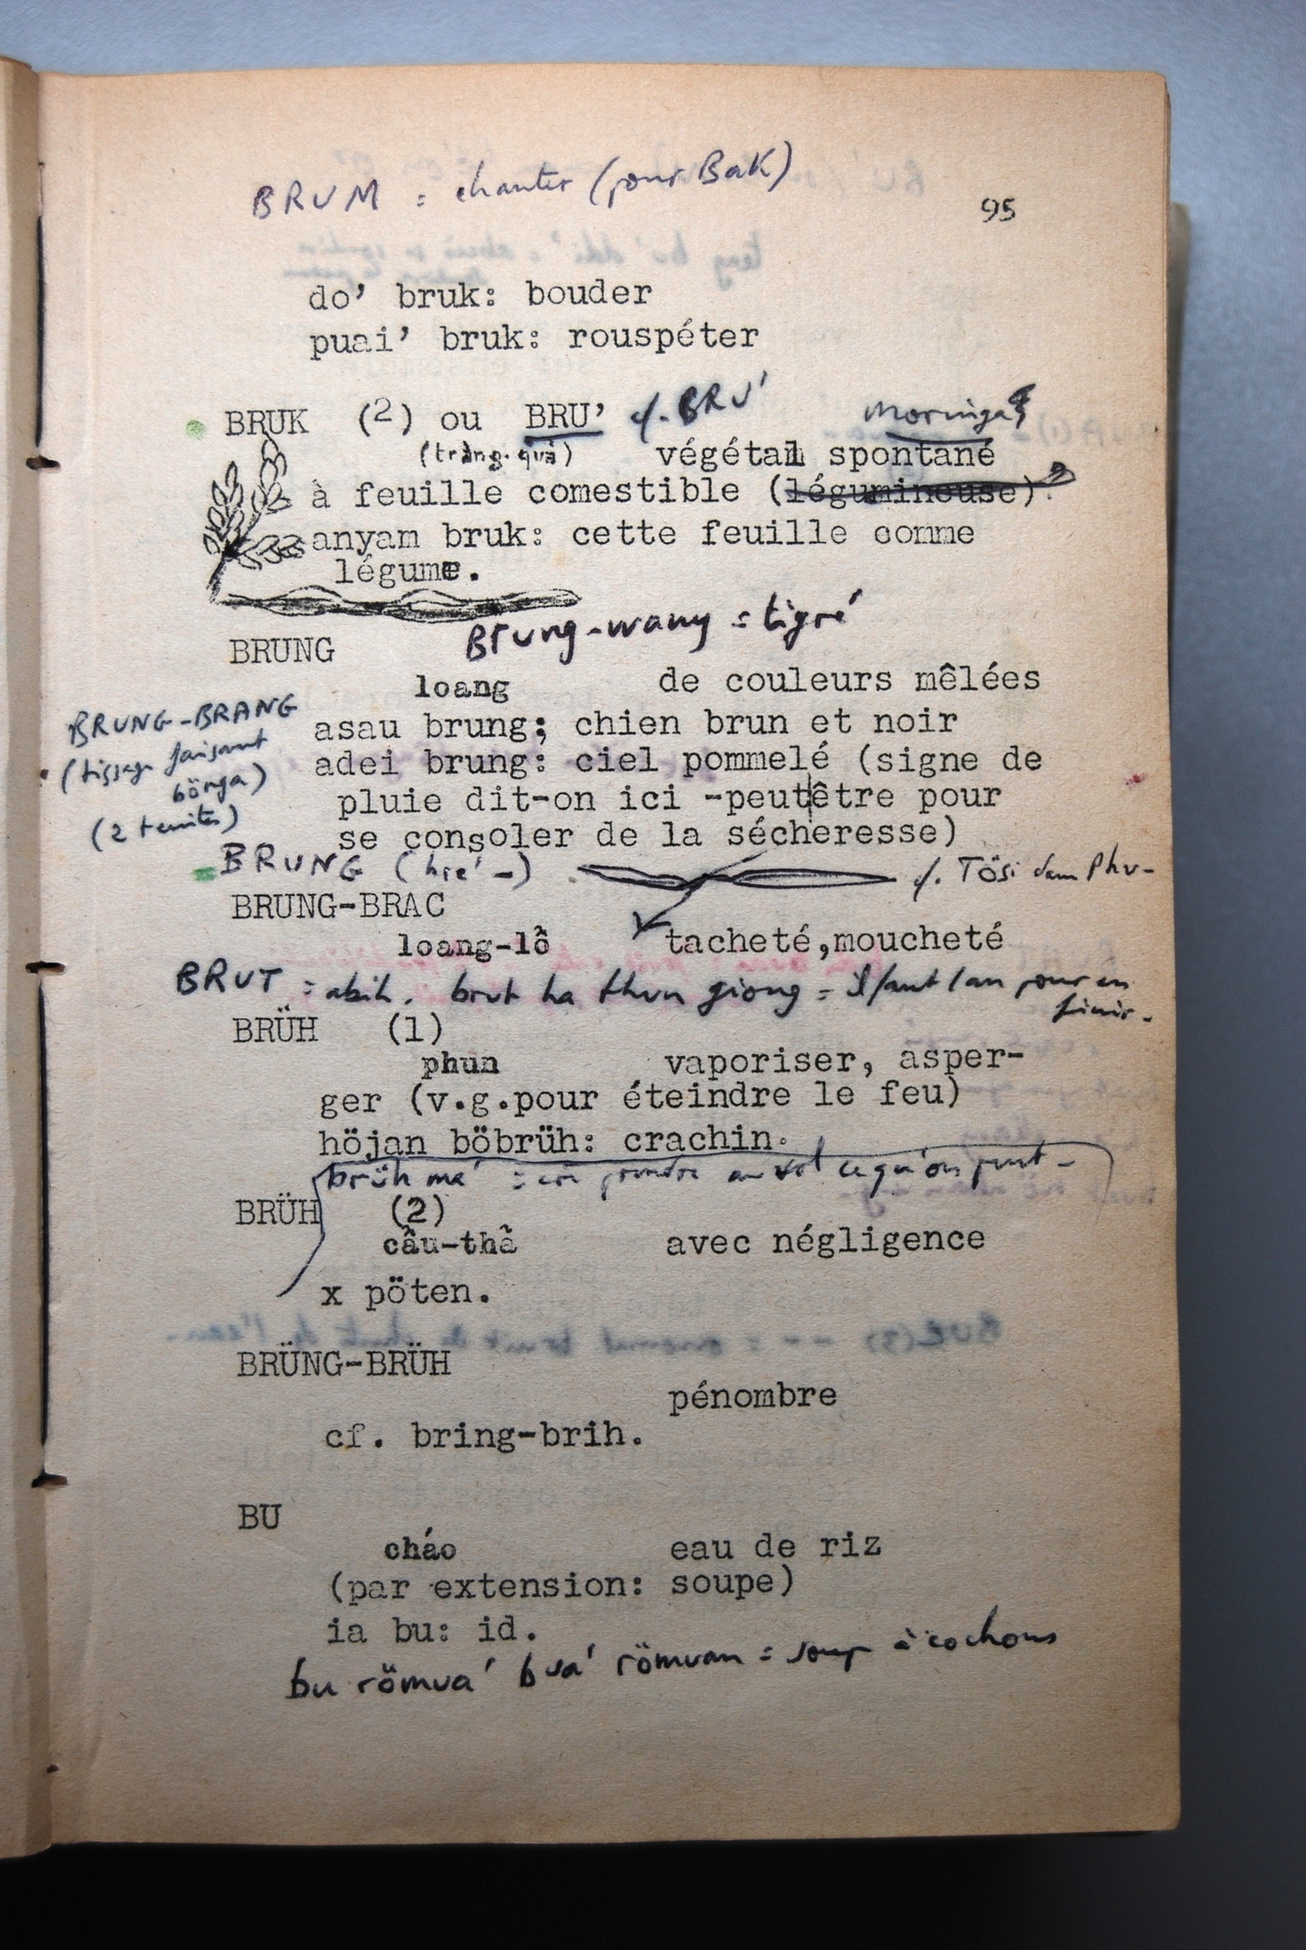 BRUM = chanter (pour Bak)
95
do' bruk: bouder
puai' bruk: rouspéter
BRUK (2) ou BRU' cf. BRU' Moringa
(tràng-quả) végétal spontané
à feuille comestible (légumineuse)?
anyam bruk: cette feuille comme
légume.
Brung-wang = tigré
BRUNG
loang de couleurs mêlées
BRUNG-BRANG
(tissage faisant
börga)
(2 teintes)
asau brung; chien brun et noir
adei brung: ciel pommelé (signe de
pluie dit-on ici -peut être pour
se consoler de la sécheresse)
BRUNG (hré -) cf. Tösi dam Phu-
BRUNG-BRAC
loang-lổ tacheté,moucheté
BRUT = abih. brut ha thun giong = il faut 1 an pour en
finir.
BRÜH (1)
phun vaporiser, asper-
ger (v.g.pour éteindre le feu)
höjan böbrüh: crachin.
brüh ma' = prendre au vol ce qu'on peut -
BRÜH (2)
cẩu-thả avec négligence
x pöten.
BRÜNG-BRÜH
pénombre
cf. bring-brih.
BU
cháo eau de riz
(par extension: soupe)
ia bu: id.
bu römua' bua' römuan = soupe à cochons